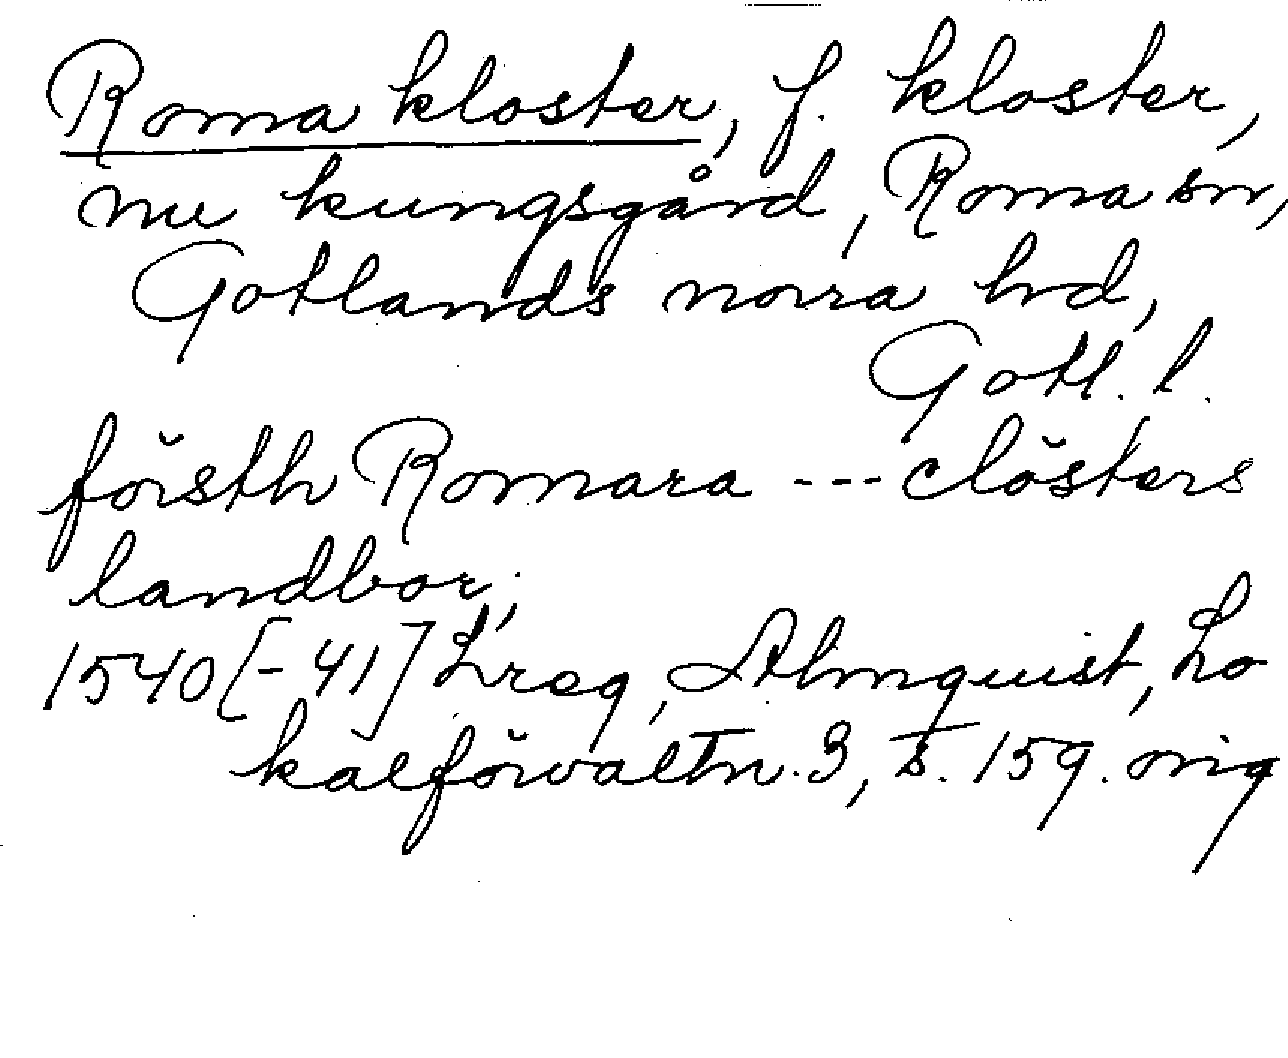 Roma kloster, f. kloster,
nu kungsgård, Roma sn,
Gotlands norra hd,
Gotl. l.
försth Romara --- clösters
landbor;
1540[-41] Lreg, Almquist, Lo
kalförvaltn. 3, s. 159. orig